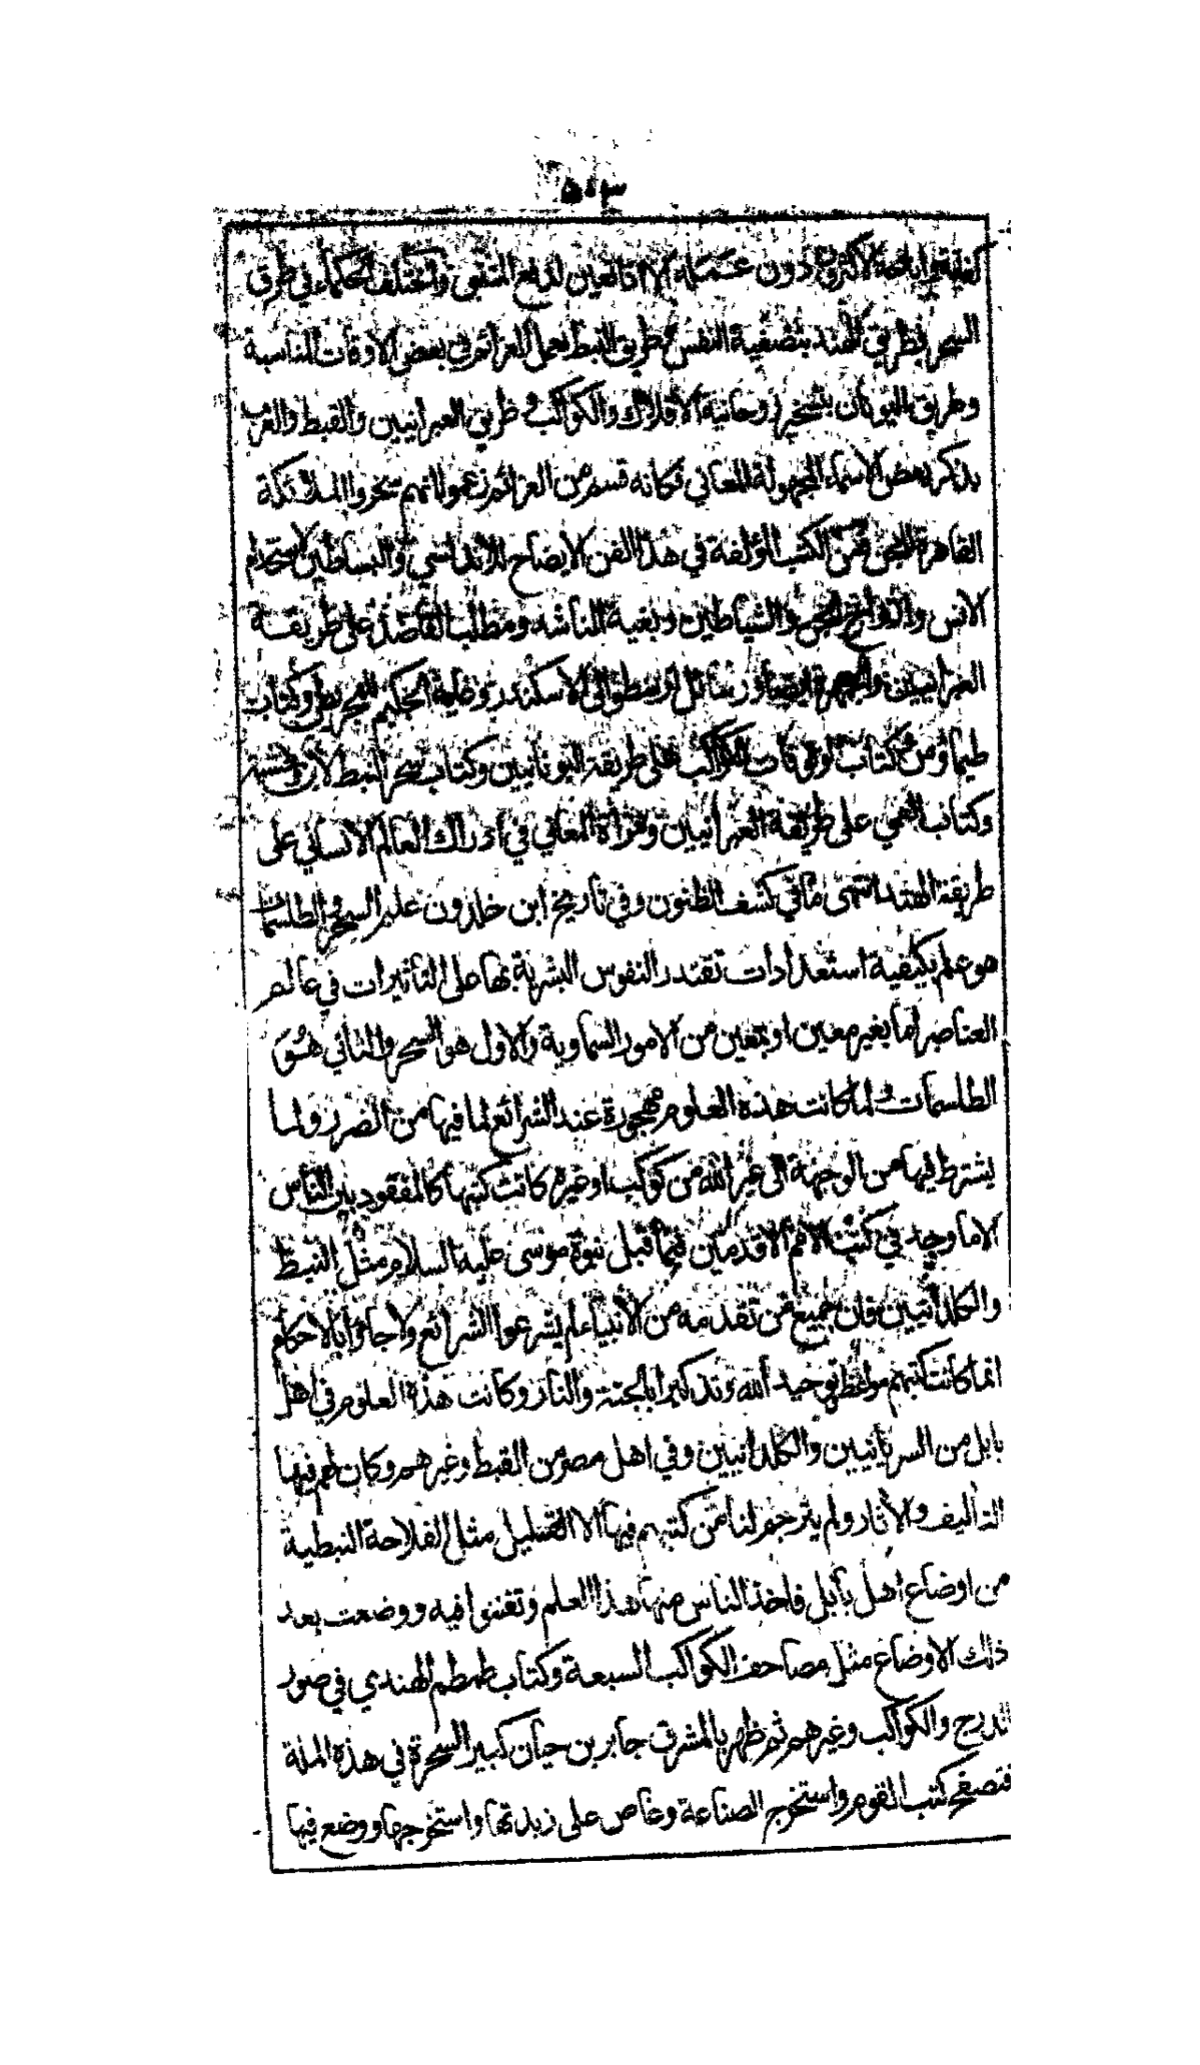 ٥٠٣
واباحه الاكثرون دون عمله الا اذا تعين لدفع المتنبي واختلف الحكماء في طرق
السحر فطريق الهند بتصفية النفس وطريق النبط بعمل العزائم في بعض الاوقات المناسبة
وطريق اليونان بتسخير روحانية الافلاك والكواكب وطريق العبرانيين والقبط والعرب
بذكر بعض الاسماء المجهولة المعاني فكانه قسم من العزائم زعموا انهم سخروا الملائكة
القاهرة للجن فمن الكتب المؤلفة في هذا الفن الايضاح للاندلسي والبساطين لاستخدام
الانس وارواح الجن والشياطين وبغية الناشد ومطلب القاصد على طريقة
العبرانيين والجمهرة ايضا ورسائل ارسطو الى الاسكندر وغاية الحكيم للمجريطي وكتاب
طيماوس وكتاب الوقوفات للكواكب على طريقة اليونانيين وكتاب سحر النبط لابن وحشية
وكتاب العمي على طريقة العبرانيين ومرآة المعاني في ادراك العالم الانساني على
طريقة الهند انتهى ما في كشف الظنون وفي تاريخ ابن خلدون علم السحر والطلسمات
هو علم بكيفية استعدادات تقتدر النفوس البشرية بها على التأثيرات في عالم
العناصر اما بغير معين او بمعين من الامور السماوية والاول هو السحر والثاني هو
الطلسمات ولما كانت هذه العلوم مهجورة عند الشرائع لما فيها من الضرر ولما
يشترط فيها من الوجهة الى غير الله من كوكب او غيره كانت كتبها كالمفقود بين الناس
الا ما وجد في كتب الامم الاقدمين فيما قبل نبوة موسى عليه السلام مثل النبط
والكلدانيين فان جميع من تقدمه من الأنبياء لم يشرعوا الشرائع ولا جاؤا بالاحكام
انما كانت كتبهم مواعظ وتوحيد الله وتذكيرا بالجنة والنار وكانت هذه العلوم في اهل
بابل من السريانيين والكلدانيين وفي اهل مصر من القبط وغيرهم وكان لهم فيها
التأليف والآثار ولم يترجم لنا من كتبهم فيها الا القليل مثل الفلاحة النبطية
من اوضاع اهل بابل فاخذ الناس منها هذا العلم وتفننوا فيه ووضعت بعد
ذلك الاوضاع مثل مصاحف الكواكب السبعة وكتاب طمطم الهندي في صور
الدرج والكواكب وغيرهم ثم ظهر بالمشرق جابر بن حيان كبير السحرة في هذه الملة
فتصفح كتب القوم واستخرج الصناعة وغاص على زبدتها واستخرجها ووضع فيها